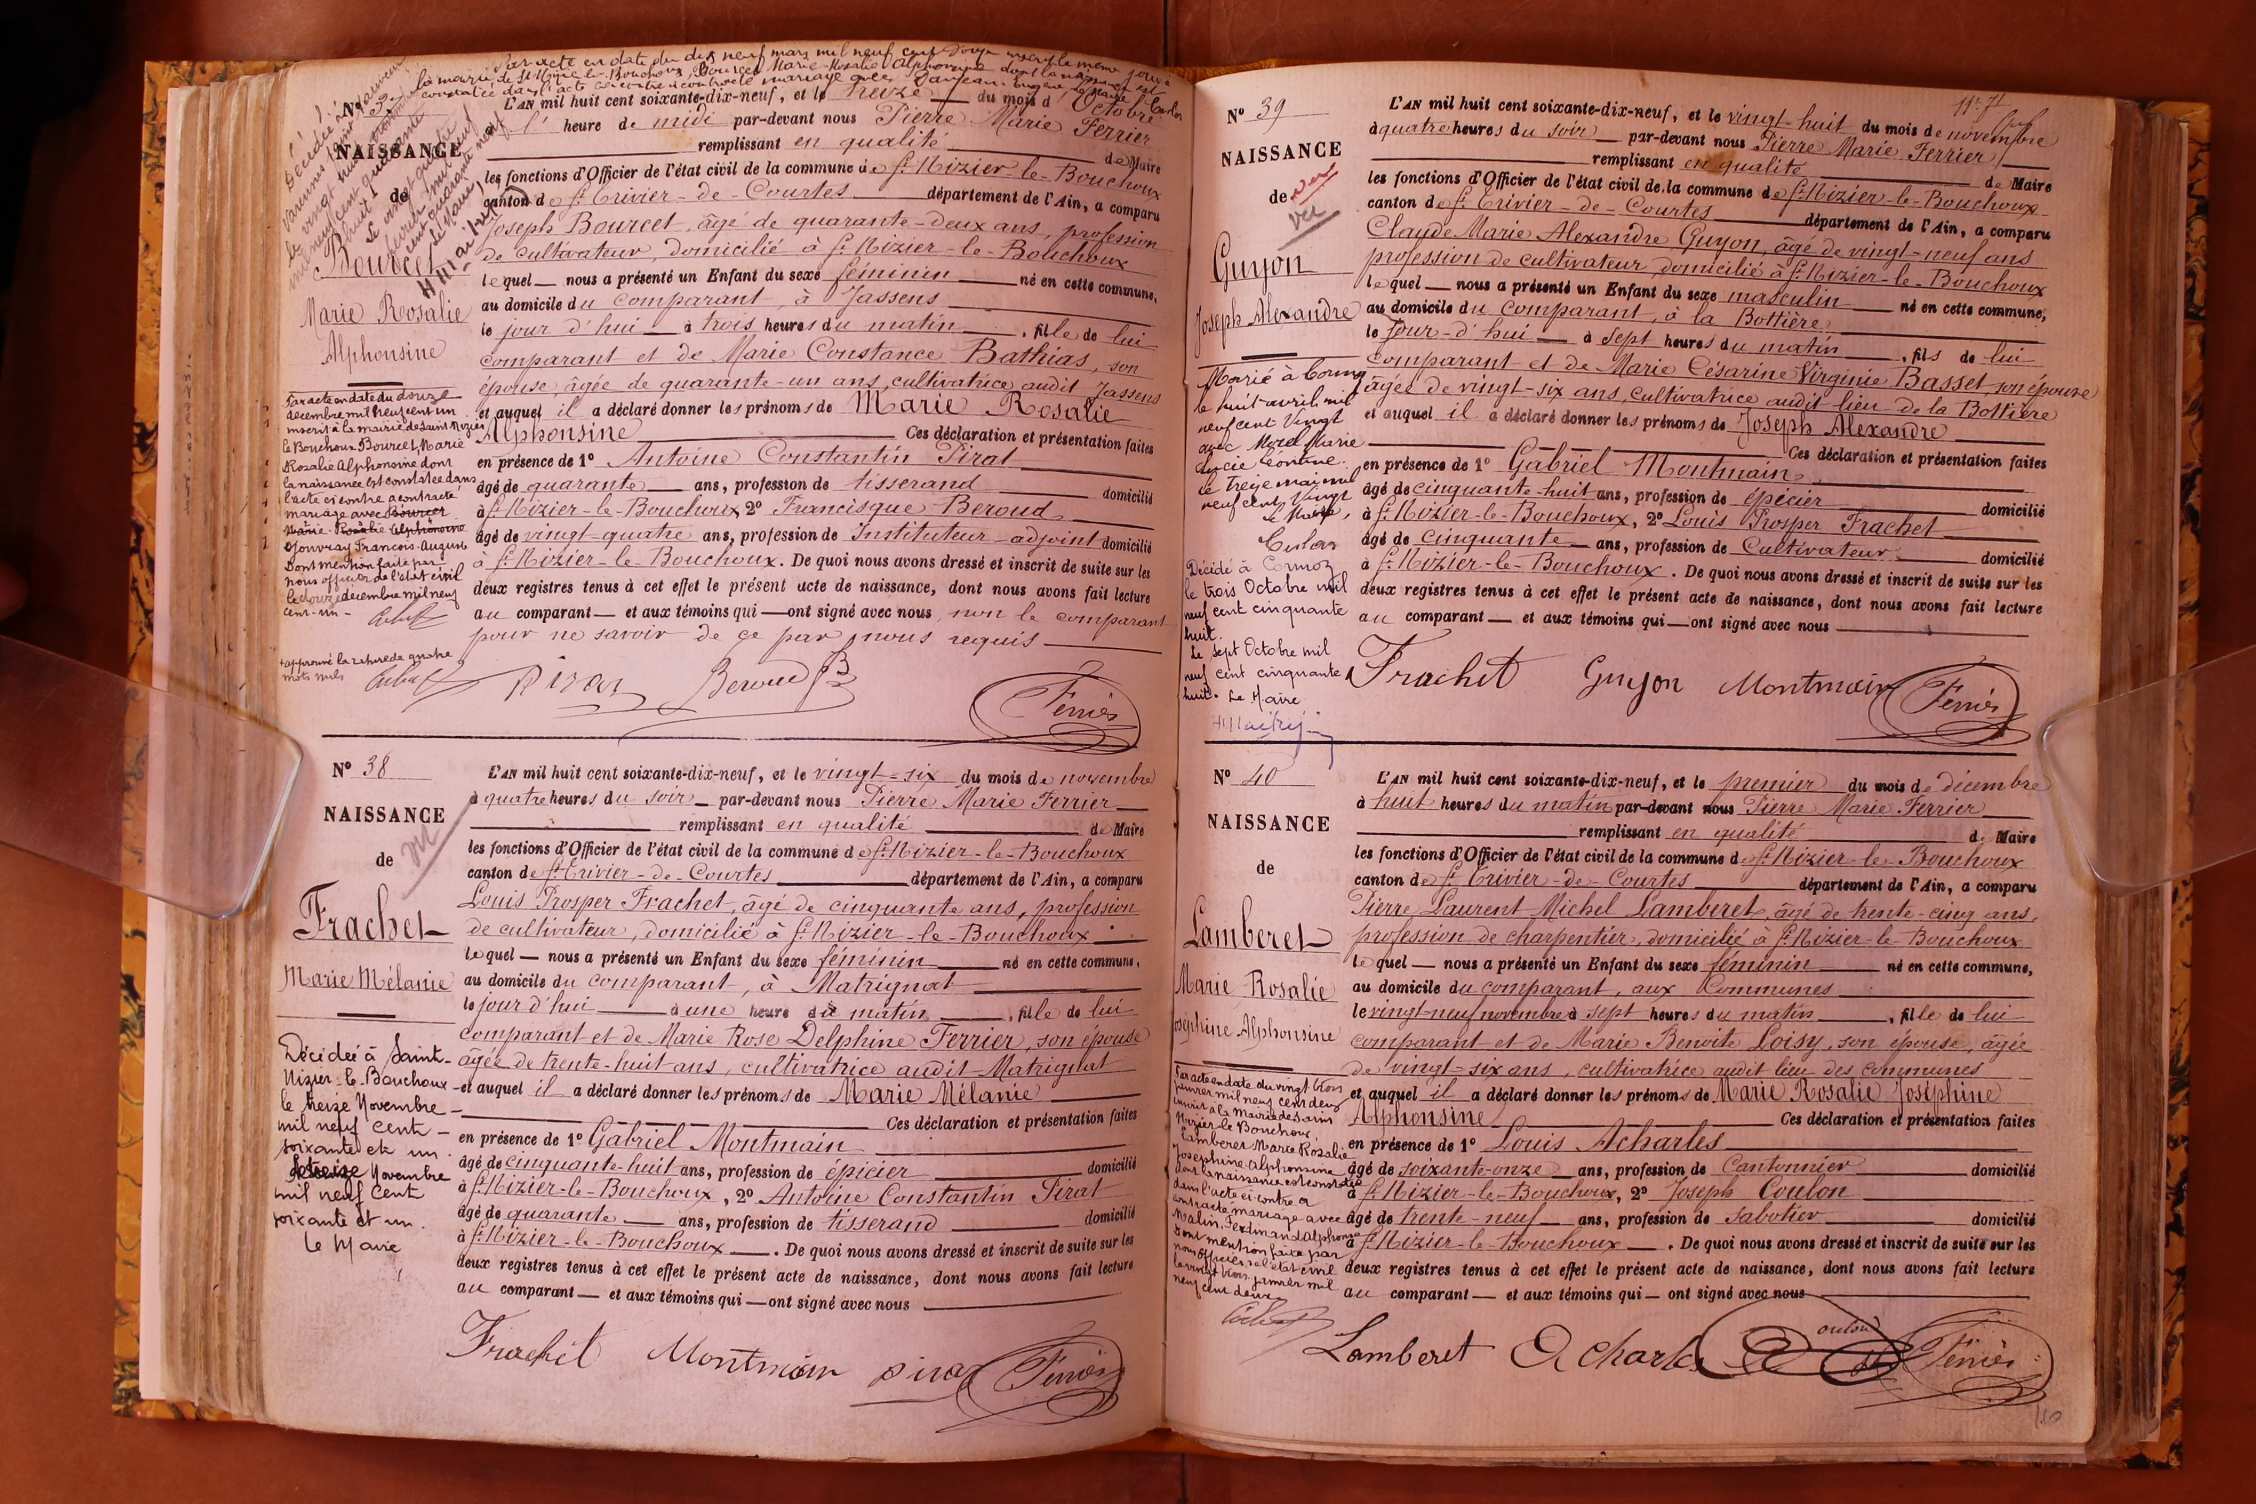 Par acte en date du dix neuf mars mil neuf cent douze inscrit le même jour à
la mairie de St Nizier-le-Bouchoux, Bourcet Marie-Rosalie Alphonsine dont la naissance est
constatée dans l'acte ci-contre a contracté mariage avec
Décédée à
Varennes Saint Sauveur
le vingt huit
mil neuf cent quarante
huit
Le vingt quatre
mil neuf
cent quarante neuf
Le Maire,
HMaitrej
NAISSANCE
de
Bourcet
Marie Rosalie
Alphonsine
Par acte en date du douze
décembre mil neuf cent un
inscrit à la mairie de Saint Nizier
le Bouchoux Bourcet, Marie
Rosalie Alphonsine dont
la naissance est constatée dans
l'acte ci contre a contracté
mariage avec Bourcet
Marie Rosalie Alphonsine
Jonvray François-Auguste
Dont mention faite par
nous officier de l'état civil
le douze décembre mil neuf
cent-un -
+ approuvé la rature de quatre
mots nuls
L'AN mil huit cent soixante-dix-neuf, et le treize du mois d'Octobre
à l' heure de midi par-devant nous Pierre Marie Ferrier
remplissant en qualité de Maire
les fonctions d'Officier de l'état civil de la commune de St Nizier-le-Bouchoux
canton de St Trivier-de-Courtes département de l'Ain, a comparu
Joseph Bourcet, âgé de quarante-deux ans, profession
de cultivateur, domicilié à St Nizier-le-Bouchoux
lequel nous a présenté un Enfant du sexe féminin né en cette commune,
au domicile du comparant, à Jassens
le jour d'hui à trois heures du matin, fille de lui
comparant et de Marie Constance Bathias, son
épouse, âgée de quarante-un ans, cultivatrice audit Jassens
et auquel il a déclaré donner les prénoms de Marie Rosalie
Alphonsine Ces déclaration et présentation faites
en présence de 1° Antoine Constantin Pirat
âgé de quarante ans, profession de tisserand domicilié
à St Nizier-le-Bouchoux 2° Francisque Beroud
âgé de vingt-quatre ans, profession de Instituteur-adjoint domicilié
à St Nizier-le-Bouchoux. De quoi nous avons dressé et inscrit de suite sur les
deux registres tenus à cet effet le présent acte de naissance, dont nous avons fait lecture
au comparant et aux témoins qui ont signé avec nous, non le comparant
pour ne savoir de ce par nous requis
Pirat Beroud Ferrier
N° 38
NAISSANCE
de
vu
Frachet
Marie Mélanie
Décédée à Saint-
Nizier-le-Bouchoux
le treize Novembre
mil neuf cent
soixante et un.
Le treize Novembre
mil neuf cent
soixante et un.
Le Maire
L'AN mil huit cent soixante-dix-neuf, et le vingt-six du mois de novembre
à quatre heures du soir par-devant nous Pierre Marie Ferrier
remplissant en qualité de Maire
les fonctions d'Officier de l'état civil de la commune de St Nizier-le-Bouchoux
canton de St Trivier-de-Courtes département de l'Ain, a comparu
Louis Prosper Frachet, âgé de cinquante ans, profession
de cultivateur, domicilié à St Nizier-le-Bouchoux
lequel nous a présenté un Enfant du sexe féminin né en cette commune,
au domicile du comparant, à Matrignat
le jour d'hui à une heure du matin, fille de lui
comparant et de Marie Rose Delphine Ferrier, son épouse
âgée de trente-huit ans, cultivatrice audit Matrignat
et auquel il a déclaré donner les prénoms de Marie Mélanie
Ces déclaration et présentation faites
en présence de 1° Gabriel Montmain
âgé de cinquante-huit ans, profession de épicier domicilié
à St Nizier-le-Bouchoux, 2° Antoine Constantin Pirat
âgé de quarante ans, profession de tisserand domicilié
à St Nizier-le-Bouchoux. De quoi nous avons dressé et inscrit de suite sur les
deux registres tenus à cet effet le présent acte de naissance, dont nous avons fait lecture
au comparant et aux témoins qui ont signé avec nous
Frachet Montmain Pirat Ferrier
N° 39
NAISSANCE
de
vu
Guyon
Joseph Alexandre
Marié à Cormoz
le huit avril mil
neuf cent Vingt
avec Morel Marie
Lucie Léontine.
Le treize mai mil
neuf cent Vingt
Le Maire,
Décédé à Cormoz
le trois Octobre mil
neuf cent cinquante
huit.
Le sept Octobre mil
neuf cent cinquante
huit. Le Maire
HMaitrej
L'AN mil huit cent soixante-dix-neuf, et le vingt-huit du mois de novembre
à quatre heures du soir par-devant nous Pierre Marie Ferrier
remplissant en qualité de Maire
les fonctions d'Officier de l'état civil de la commune de St Nizier-le-Bouchoux
canton de St Trivier-de-Courtes département de l'Ain, a comparu
Claude Marie Alexandre Guyon, âgé de vingt-neuf ans
profession de cultivateur, domicilié à St Nizier-le-Bouchoux
lequel nous a présenté un Enfant du sexe masculin né en cette commune,
au domicile du comparant, à la Bottière
le jour-d'hui à sept heures du matin, fils de lui
comparant et de Marie Césarine Virginie Basset son épouse
âgée de vingt-six ans, cultivatrice audit lieu de la Bottière
et auquel il a déclaré donner les prénoms de Joseph Alexandre
Ces déclaration et présentation faites
en présence de 1° Gabriel Montmain
âgé de cinquante-huit ans, profession de épicier domicilié
à St Nizier-le-Bouchoux, 2° Louis Prosper Frachet
âgé de cinquante ans, profession de Cultivateur domicilié
à St Nizier-le-Bouchoux. De quoi nous avons dressé et inscrit de suite sur les
deux registres tenus à cet effet le présent acte de naissance, dont nous avons fait lecture
au comparant et aux témoins qui ont signé avec nous
Frachet Guyon Montmain Ferrier
N° 40
NAISSANCE
de
Lamberet
Marie Rosalie
Joséphine Alphonsine
Par acte en date du vingt trois
janvier mil neuf cent deux
inscrit à la mairie de Saint
Nizier le Bouchoux,
Lamberet Marie Rosalie
Joséphine Alphonsine
dont la naissance est constatée
dans l'acte ci contre a
contracté mariage avec
Malin, Ferdinand Alphonse
Dont mention faite par
nous officier de l'état civil
le vingt trois janvier mil
neuf cent deux
L'AN mil huit cent soixante-dix-neuf, et le premier du mois de décembre
à huit heures du matin par-devant nous Pierre Marie Ferrier
remplissant en qualité de Maire
les fonctions d'Officier de l'état civil de la commune de St Nizier-le-Bouchoux
canton de St Trivier-de-Courtes département de l'Ain, a comparu
Pierre Laurent Michel Lamberet, âgé de trente-cinq ans,
profession de charpentier, domicilié à St Nizier-le-Bouchoux
lequel nous a présenté un Enfant du sexe féminin né en cette commune,
au domicile du comparant, aux Communes
le vingt-neuf novembre à sept heures du matin, fille de lui
comparant et de Marie Benoite Loisy, son épouse, âgée
de vingt-six ans, cultivatrice audit lieu des Communes
et auquel il a déclaré donner les prénoms de Marie Rosalie Joséphine
Alphonsine Ces déclaration et présentation faites
en présence de 1° Louis Acharles
âgé de soixante-onze ans, profession de Cantonnier domicilié
à St Nizier-le-Bouchoux, 2° Joseph Coulon
âgé de trente-neuf ans, profession de sabotier domicilié
à St Nizier-le-Bouchoux. De quoi nous avons dressé et inscrit de suite sur les
deux registres tenus à cet effet le présent acte de naissance, dont nous avons fait lecture
au comparant et aux témoins qui ont signé avec nous
Lamberet Acharles Coulon Ferrier